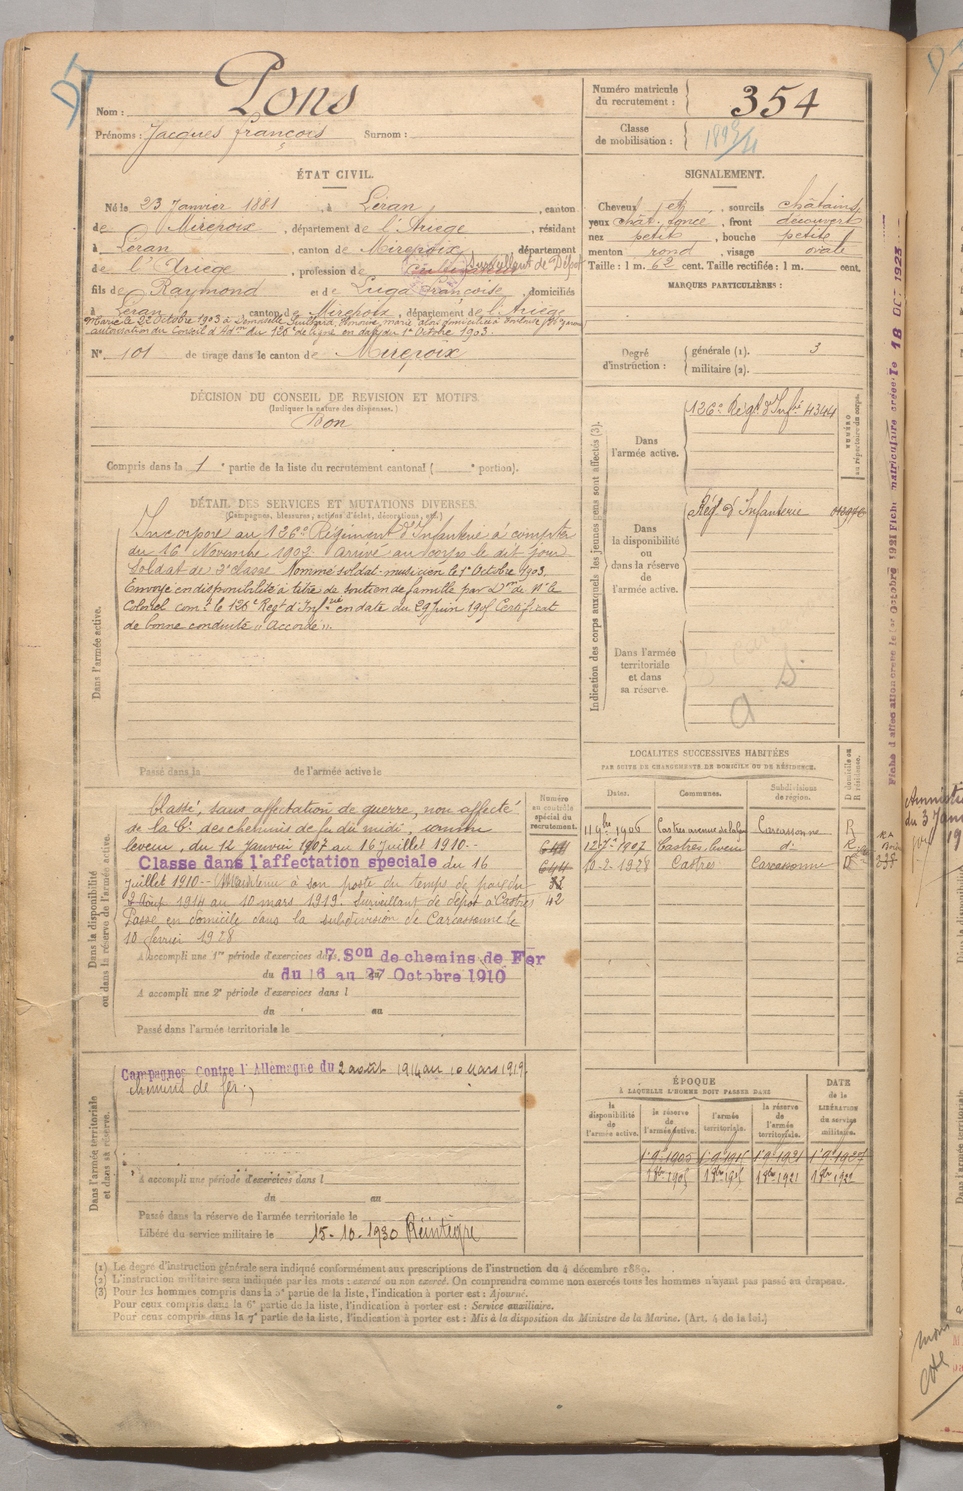 Nom : Pons
Prénoms : Jacques françois Surnom :
Numéro matricule
du recrutement : 354
Classe
de mobilisation :
ÉTAT CIVIL.
Né le 23 Janvier 1881, à Léran, canton
de Mirepoix, département de l'Ariège, résidant
à Léran, canton de Mirepoix, département
de l'Ariège, profession de cultivateur Surveillant de Dépôt
fils de Raymond et de Françoise, domiciliés
à Léran, canton de Mirepoix, département de l'Ariège
Marié le 22 Octobre 1903 à
autorisation du Conseil d'Adm on du 126e de ligne en date du 1er Octobre 1903.
N° 101 de tirage dans le canton de Mirepoix
SIGNALEMENT.
Cheveux et, sourcils châtains
yeux chât. foncé, front découvert
nez petit, bouche petite
menton rond, visage ovale
Taille : 1 m. 62 cent. Taille rectifiée : 1 m. cent.
MARQUES PARTICULIÈRES :
Degré
d'instruction :
générale (1). 3
militaire (2).
DÉCISION DU CONSEIL DE REVISION ET MOTIFS.
(Indiquer la nature des dispenses.)
Bon
Compris dans la 1e partie de la liste du recrutement cantonal ( e portion).
DÉTAIL DES SERVICES ET MUTATIONS DIVERSES.
(Campagnes, blessures, actions d'éclat, décorations, etc.)
Dans l'armée active.
Incorporé au 126e Régiment d'Infanterie à compter
du 16 Novembre 1902 arrivé au corps le dit jour
Soldat de 2e classe Nommé soldat-musicien le 1er Octobre 1903.
Envoyé en disponibilité à titre de soutien de famille par
Colonel comt le 126e Regt d'Infrie en date du 29 Juin 1905 Certificat
de bonne conduite "Accordé".
Passé dans la de l'armée active le
Indication des corps auxquels les jeunes gens sont affectés (3).
Dans
l'armée active.
126e Régt d'Infie 4344
NUMÉRO
au répertoire du corps.
Dans
la disponibilité
ou
dans la réserve
de
l'armée active.
Rég. d'Infanterie
Dans l'armée
territoriale
et dans
sa réserve.
Fiche d'affectation créée le 1er Octobre 1921 Fiche matriculaire créée le 18 OCT 1928
Dans la disponibilité
ou dans la réserve de l'armée active.
Classé, sans affectation de guerre, non affecté
de la Cie des chemins de fer du midi, comme
leveur, du 12 Janvier 1907 au 16 juillet 1910--
Classé dans l'affectation spéciale du 16
Juillet 1910-- Maintenu à son poste du temps de paix du
2 Août 1914 au 10 mars 1919. Surveillant de dépôt à Castres
Passé en domicile dans la subdivision de Carcassonne le
10 février 1928
A accompli une 1re période d'exercices dans 7e Son de chemins de Fer
du du 16 au 27 Octobre 1910
A accompli une 2e période d'exercices dans l
du au
Passé dans l'armée territoriale le
Numéro
au contrôle
spécial du
recrutement.
42
LOCALITÉS SUCCESSIVES HABITÉES
PAR SUITE DE CHANGEMENTS DE DOMICILE OU DE RÉSIDENCE.
Dates. Communes. Subdivisions
de région. D domicile ou
R résidence.
11 9bre 1906 Castres Carcassonne R
1907 Castres, leveur do R
10-2-1928 Castres Carcassonne D
Dans l'armée territoriale
et dans sa réserve.
Campagnes contre l'Allemagne du 2 août 1914 au 10 Mars 1919.
chemins de fer.
A accompli une période d'exercices dans l
du au
Passé dans la réserve de l'armée territoriale le
Libéré du service militaire le 15-10-1930 Réintégré
ÉPOQUE
À LAQUELLE L'HOMME DOIT PASSER DANS
la
disponibilité
de
l'armée active.
la réserve
de
l'armée active.
l'armée
territoriale.
la réserve
de
l'armée
territoriale.
DATE
de la
LIBÉRATION
du service
militaire.
(1) Le degré d'instruction générale sera indiqué conformément aux prescriptions de l'instruction du 4 décembre 1889.
(2) L'instruction militaire sera indiquée par les mots : exercé ou non exercé. On comprendra comme non exercés tous les hommes n'ayant pas passé au drapeau.
(3) Pour les hommes compris dans la 5e partie de la liste, l'indication à porter est : Ajourné.
Pour ceux compris dans la 6e partie de la liste, l'indication à porter est : Service auxiliaire.
Pour ceux compris dans la 7e partie de la liste, l'indication à porter est : Mis à la disposition du Ministre de la Marine. (Art. 4 de la loi.)